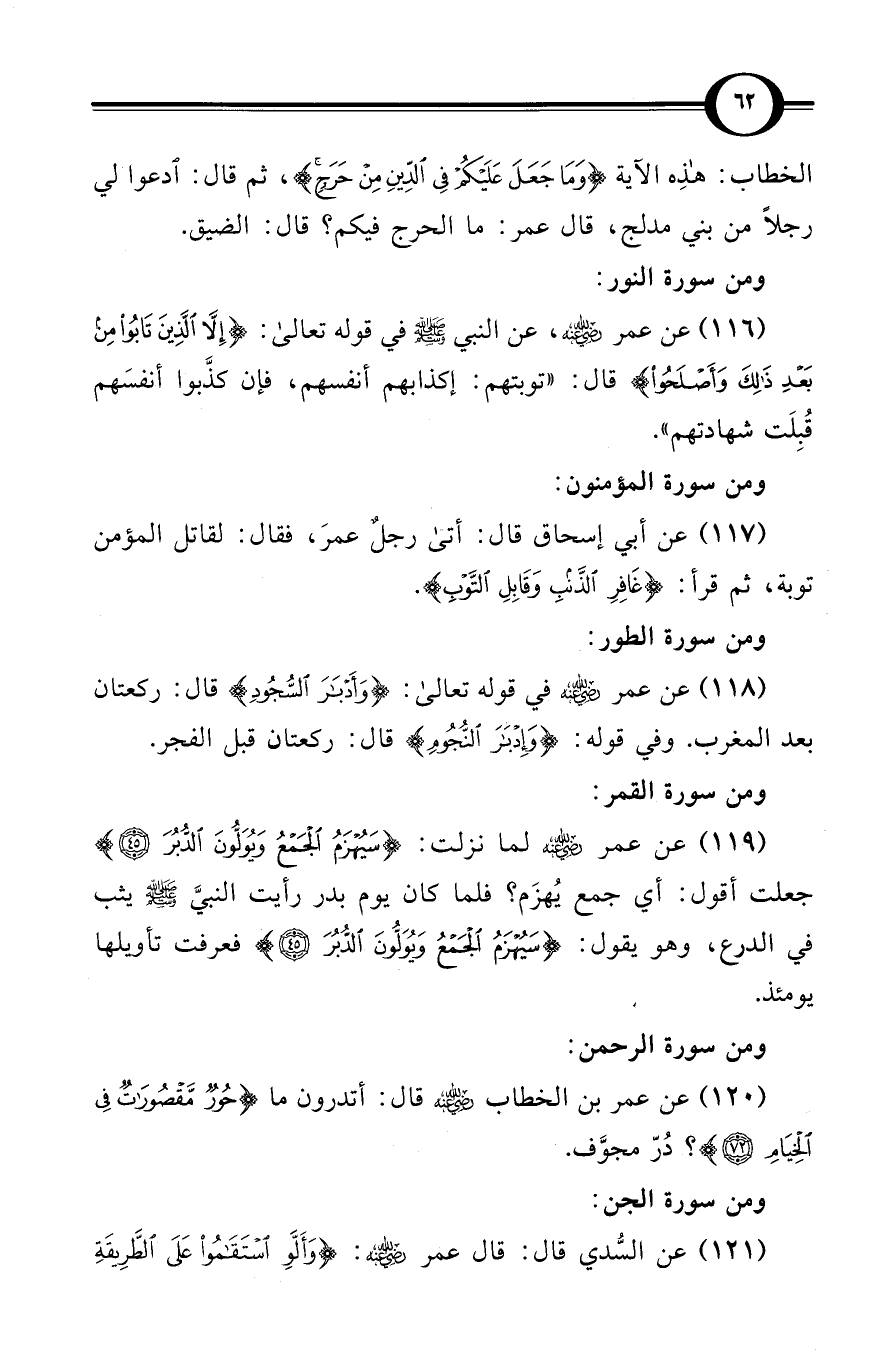 ٦٢
الخطاب: هٰذِه الآية ﴿وَمَا جَعَلَ عَلَيْكُمْ فِي ٱلدِّينِ مِنْ حَرَجٍ﴾، ثم قال: ٱدعوا لي
رجلاً من بني مدلج، قال عمر: ما الحرج فيكم؟ قال: الضيق.
ومن سورة النور:
(١١٦) عن عمر رضي الله عنه، عن النبي ﷺ في قوله تعالىٰ: ﴿إِلَّا ٱلَّذِينَ تَابُوا۟ مِنۢ
بَعْدِ ذَٰلِكَ وَأَصْلَحُوا۟﴾ قال: «توبتهم: إكذابهم أنفسهم، فإن كذَّبوا أنفسَهم
قُبِلَت شهادتهم».
ومن سورة المؤمنون:
(١١٧) عن أبي إسحاق قال: أتىٰ رجلٌ عمرَ، فقال: لقاتل المؤمن
توبة، ثم قرأ: ﴿غَافِرِ ٱلذَّنۢبِ وَقَابِلِ ٱلتَّوْبِ﴾.
ومن سورة الطور:
(١١٨) عن عمر رضي الله عنه في قوله تعالىٰ: ﴿وَأَدْبَٰرَ ٱلسُّجُودِ﴾ قال: ركعتان
بعد المغرب. وفي قوله: ﴿وَإِدْبَٰرَ ٱلنُّجُومِ﴾ قال: ركعتان قبل الفجر.
ومن سورة القمر:
(١١٩) عن عمر رضي الله عنه لما نزلت: ﴿سَيُهْزَمُ ٱلْجَمْعُ وَيُوَلُّونَ ٱلدُّبُرَ ٤٥﴾
جعلت أقول: أي جمع يُهزَم؟ فلما كان يوم بدر رأيت النبيَّ ﷺ يثب
في الدرع، وهو يقول: ﴿سَيُهْزَمُ ٱلْجَمْعُ وَيُوَلُّونَ ٱلدُّبُرَ ٤٥﴾ فعرفت تأويلها
يومئذ.
ومن سورة الرحمن:
(١٢٠) عن عمر بن الخطاب رضي الله عنه قال: أتدرون ما ﴿حُورٌ مَّقْصُورَٰتٌ فِي
ٱلْخِيَامِ ٧٢﴾؟ دُرّ مجوَّف.
ومن سورة الجن:
(١٢١) عن السُّدي قال: قال عمر رضي الله عنه: ﴿وَأَلَّوِ ٱسْتَقَٰمُوا۟ عَلَى ٱلطَّرِيقَةِ